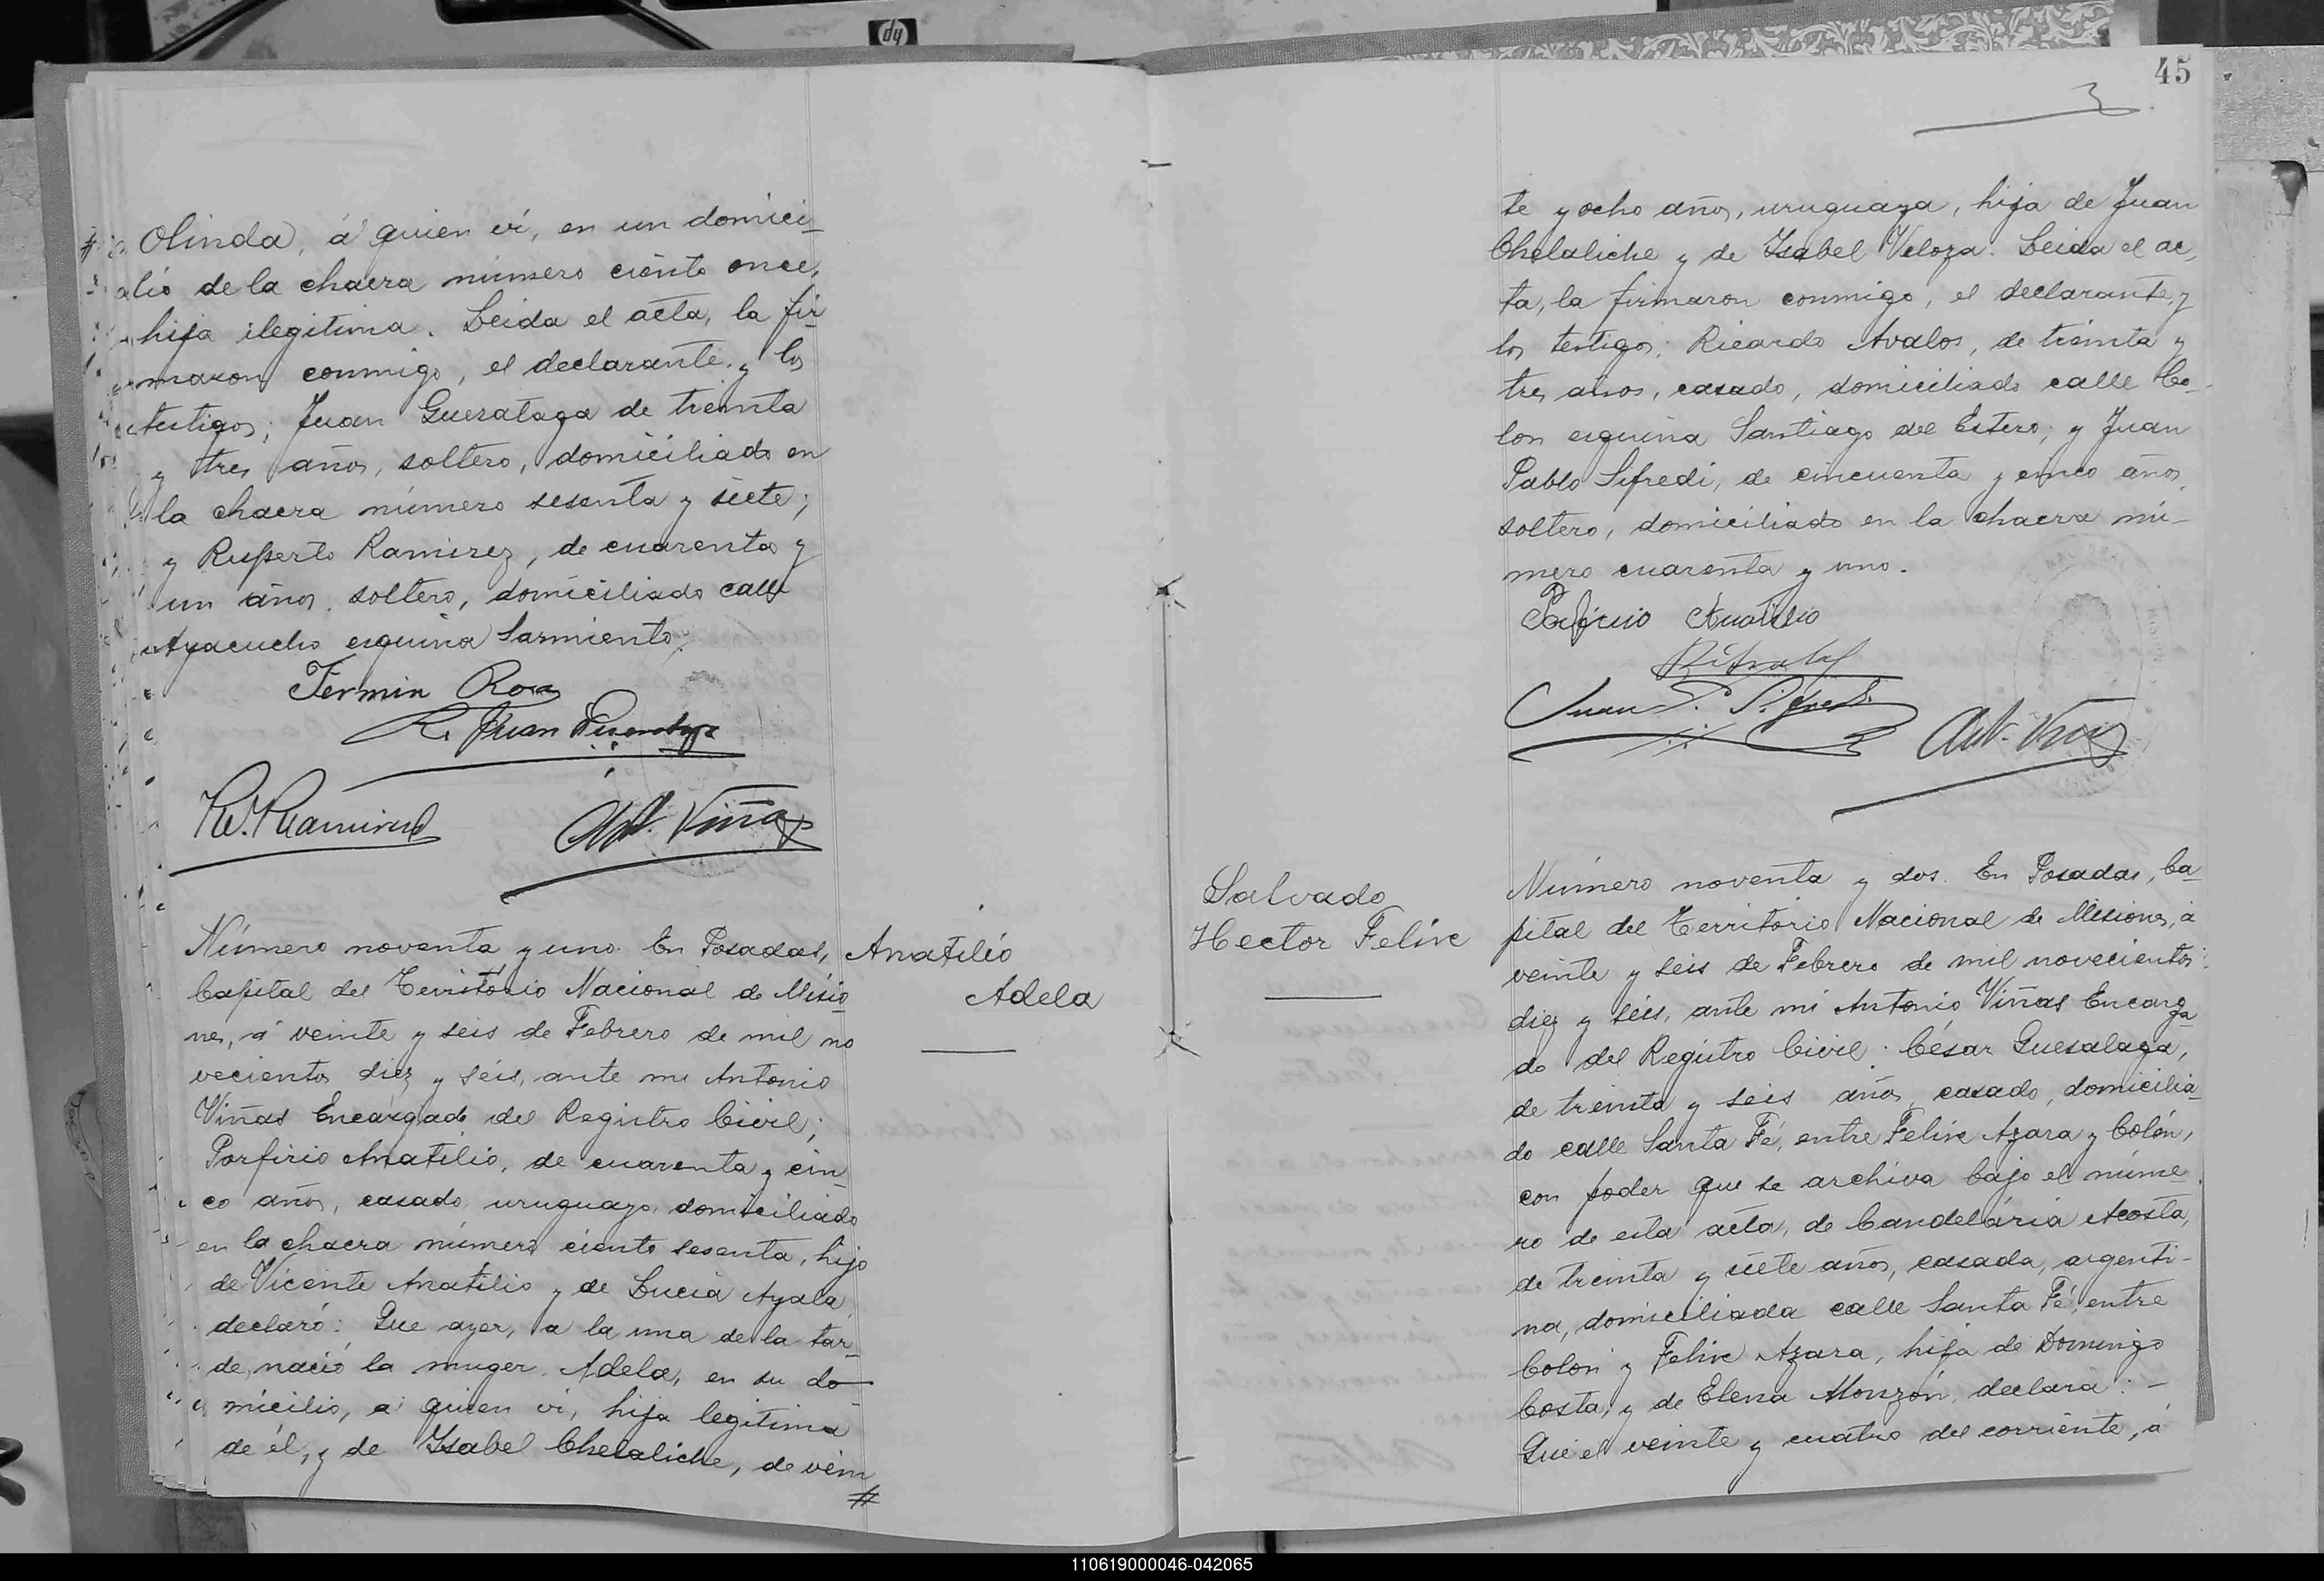 hp
Olinda, á quien ví, en un domici-
lio de la chacra número ciento once,
hija ilegitima. Leida el acta, la fir-
maron conmigo, el declarante y los
testigos; Juan Guesalaga de treinta
y tres años, soltero, domiciliado en
la chacra número sesenta y siete;
y Ruperto Ramirez, de cuarenta y
un años, soltero, domiciliado calle
Ayacucho esquina Sarmiento.
Fermin Roa
R. Juan
R. Ramirez
Ant. Viñas
Número noventa y uno. En Posadas,
Capital del Territorio Nacional de Misio-
nes, á veinte y seis de Febrero de mil no
vecientos diez y seis, ante mi Antonio
Viñas Encargado del Registro Civil;
Porfirio Anatilio, de cuarenta y cin-
co años, casado, uruguayo, domiciliado
en la chacra número ciento sesenta, hijo
de Vicente Anatilio y de Lucia Ayala
declaró: Que ayer, a la una de la tar-
de, nació la muger Adela, en su do-
micilio, a quien vi, hija legitima
de él, y de Ysabel Chelaliche, de vein
#
Anatilio
Adela
45
te y ocho años, uruguaya, hija de Juan
Chelaliche y de Ysabel Veloza. Leida el ac-
ta, la firmaron conmigo, el declarante, y
los testigos; Ricardo Avalos, de treinta y
tres años, casado, domiciliado calle Co-
lon esquina Santiago del Estero; y Juan
Pablo Sifredi, de cincuenta y cinco años,
soltero, domiciliado en la chacra nú-
mero cuarenta y uno.
Porfirio Anatilio
R. Avalos
Juan P. Sifredi
Ant. Viñas
Salvado
Hector Felix
Número noventa y dos. En Posadas, Ca-
pital del Territorio Nacional de Misiones, á
veinte y seis de Febrero de mil novecientos
diez y seis, ante mi Antonio Viñas Encarga-
do del Registro Civil; César Guesalaga,
de treinta y seis años, casado, domicilia-
do calle Santa Fé, entre Felix Azara y Colón,
con poder que se archiva bajo el núme-
ro de esta acta, de Candelária Acosta,
de treinta y siete años, casada, argenti-
na, domiciliada calle Santa Fé, entre
Colon y Felix Azara, hija de Domingo
Costa, y de Elena Monzón, declara: -
Que el veinte y cuatro del corriente, á
110619000046-042065